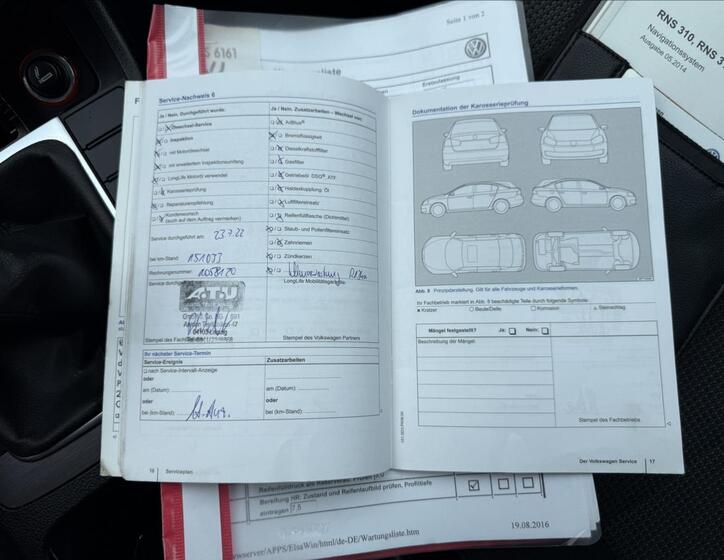 Seite 1 von 2
S 6161
RNS 310, RNS 3
Navigationssystem
Ausgabe 05.2014
Service-Nachweis 6
Ja / Nein, Durchgeführt wurde:
Ölwechsel-Service
Inspektion
mit Motorölwechsel
mit erweitertem Inspektionsumfang
LongLife Motoröl verwendet
Karosserieprüfung
Reparaturempfehlung
Kundenwunsch
(auch auf dem Auftrag vermerken)
Service durchgeführt am: 23.7.22
bei km-Stand: 151033
Rechnungsnummer: 1058120
ATU
Stempel des
Ja / Nein, Zusatzarbeiten – Wechsel von:
AdBlue®
Bremsflüssigkeit
Dieselkraftstofffilter
Gasfilter
Getriebeöl DSG®, ATF
Haldexkupplung: Öl
Luftfiltereinsatz
Reifenfüllflasche (Dichtmittel)
Staub- und Pollenfiltereinsatz
Zahnriemen
Zündkerzen
LongLife Mobilitätsgarantie:
Stempel des Volkswagen Partners
Ihr nächster Service-Termin
Service-Ereignis
Zusatzarbeiten
nach Service-Intervall-Anzeige
oder
am (Datum):
am (Datum):
oder
oder
bei (km-Stand):
bei (km-Stand):
16 Serviceplan
Dokumentation der Karosserieprüfung
Abb. 8 Prinzipdarstellung. Gilt für alle Fahrzeuge und Karosserieformen.
Ihr Fachbetrieb markiert in Abb. 8 beschädigte Teile durch folgende Symbole:
Kratzer Beule/Delle Korrosion Steinschlag
Mängel festgestellt? Ja: Nein:
Beschreibung der Mängel:
Stempel des Fachbetriebs.
Der Volkswagen Service 17
Bereifung HR: Zustand und Reifenlaufbild prüfen, Profiltiefe
eintragen 7,5
19.08.2016
wserver/APPS/ElsaWin/html/de-DE/Wartungsliste.htm